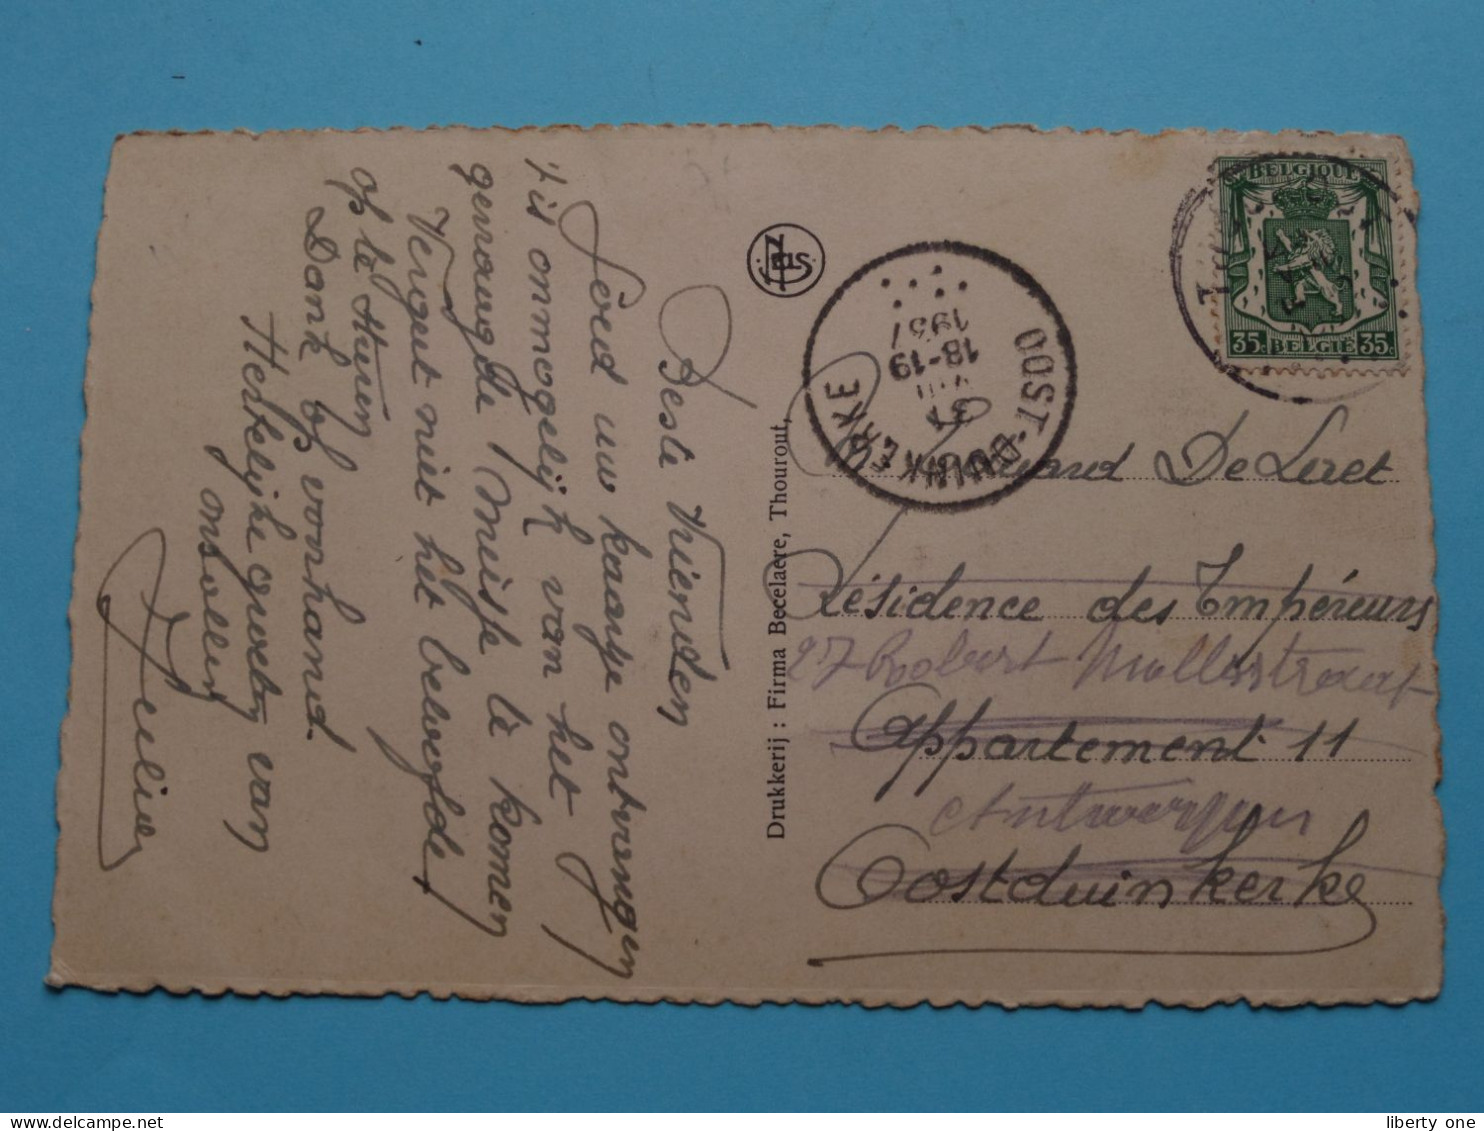 Beste Vrienden
Goed uw kaartje ontvangen
't is onmogelijk van het
gevraagde Meisje te komen
Vergeet niet het beloofde
op te sturen
Dank op voorhand
Hertelijke groeten van
ons allen
Julien
NELS
Drukkerij : Firma Becelaere, Thourout,
OOST-DUINKERKE
31
VIII
18-19
1937
BELGIQUE
35c BELGIË 35c
De Leret
Résidence des Empéreurs
27 Robert Mollsstraat
Appartement 11
Antwerpen
Oostduinkerke
liberty one